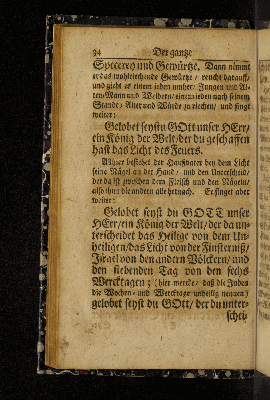 94 Der gantze
Specerey und Gewürtze. Dann nimmt
er das wohlriechende Gewürtze / reucht darauff /
und giebt es einem jeden umher / Jungen und Al-
ten / Mann und Weibern / einem jeden nach seinem
Stande / Alter und Würde zu riechen / und singt
weiter:
Gelobet seystu GOtt unser HErr /
ein König der Welt / der du geschaffen
hast das Licht des Feuers.
Allhier besiehet der Haußvater bey dem Licht
seine Nägel an der Hand / und den Unterscheid /
der da ist zwischen dem Fleisch und den Nägeln /
also thun die andern alle hernach. Er singet aber
weiter:
Gelobet seyst du GOTT unser
HErr / ein König der Welt / der da un-
terscheidet das Heilige von dem Un-
heiligen / das Licht von der Finsterniß /
Israel von den andern Völckern / und
den siebenden Tag von den sechs
Wercktagen; (hier mercke / daß die Juden
die Wochen- und Wercktage unheilig nennen)
gelobet seyst du GOtt / der du unter-
schei-